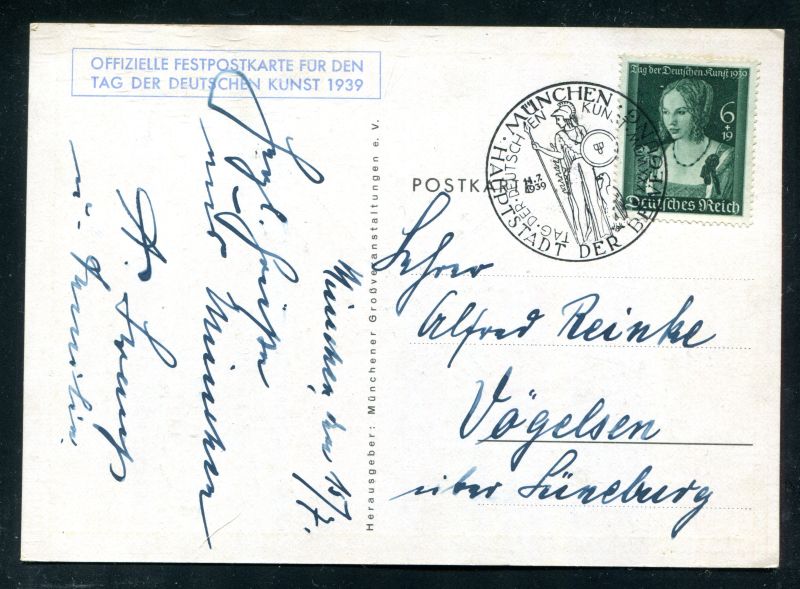 OFFIZIELLE FESTPOSTKARTE FÜR DEN
TAG DER DEUTSCHEN KUNST 1939
München, den 15/7.
Herzl. Grüße
aus München
H.
u. Familie
Herausgeber: Münchener Großveranstaltungen e. V.
POSTKARTE
MÜNCHEN
HAUPTSTADT DER BEWEGUNG
TAG·DER·DEUTSCHEN KUNST
14.7.
1939
Tag der Deutschen Kunst 1939
6
+
19
Deutsches Reich
Lehrer
Alfred Reinke
Vögelsen
über Lüneburg